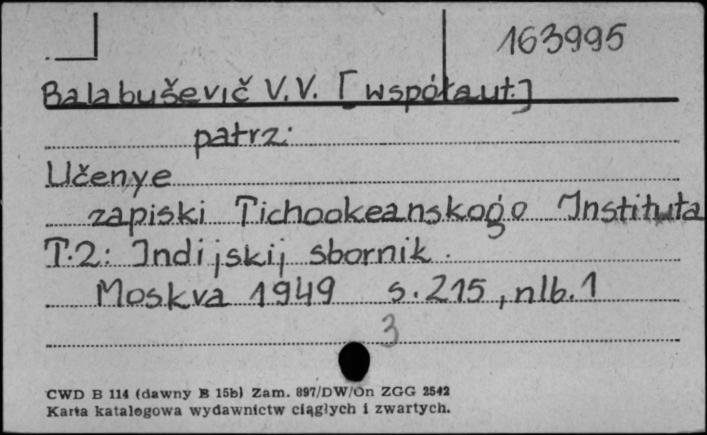 163995
Balabuševič V.V. [współaut.]
patrz:
Učenye
zapiski Tichookeanskogo Instituta
T.2: Indijskij sbornik.
Moskva 1949 s. 215, nlb. 1
3
CWD B 114 (dawny B 15b) Zam. 897/DW/On ZGG 2542
Karta katalogowa wydawnictw ciągłych i zwartych.